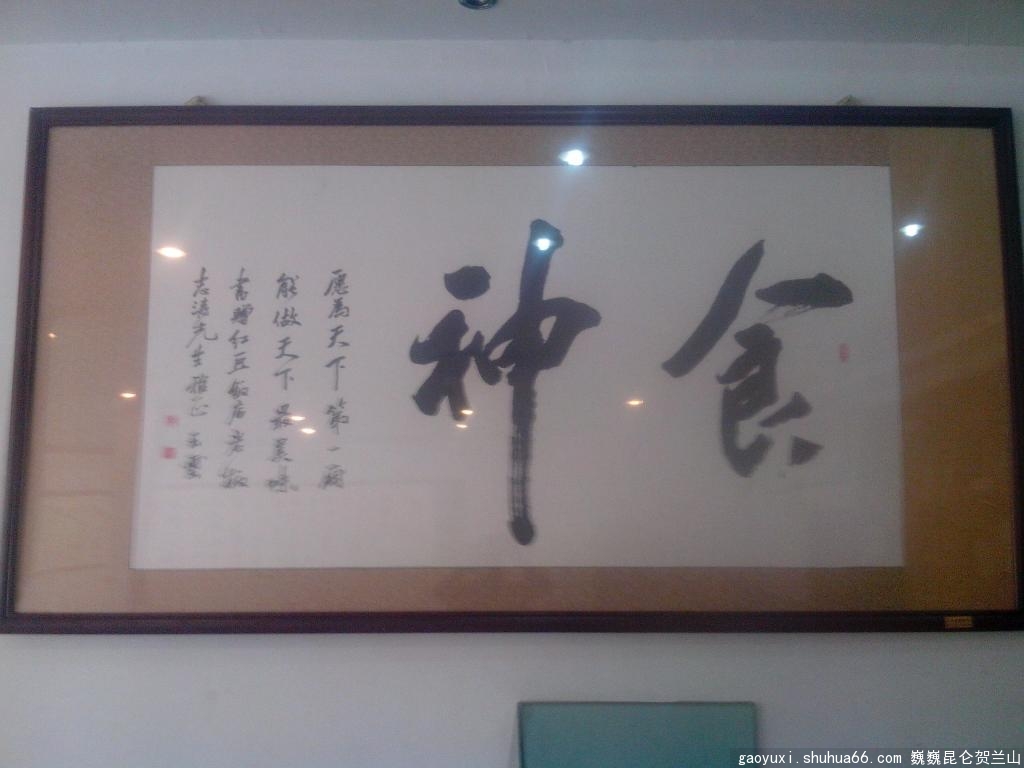 食神
愿为天下第一厨
能做天下最美味
书赠红豆饭店老板
志涛先生雅正 玉云
gaoyuxi.shuhua66.com 巍巍昆仑贺兰山